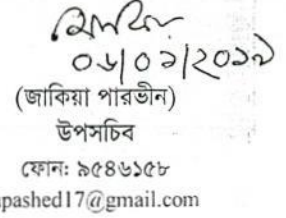 ০৬|০১|২০১৯
(জাকিয়া পারভীন)
উপসচিব
ফোন: ৯৫৪৬১৫৮
pashed17@gmail.com